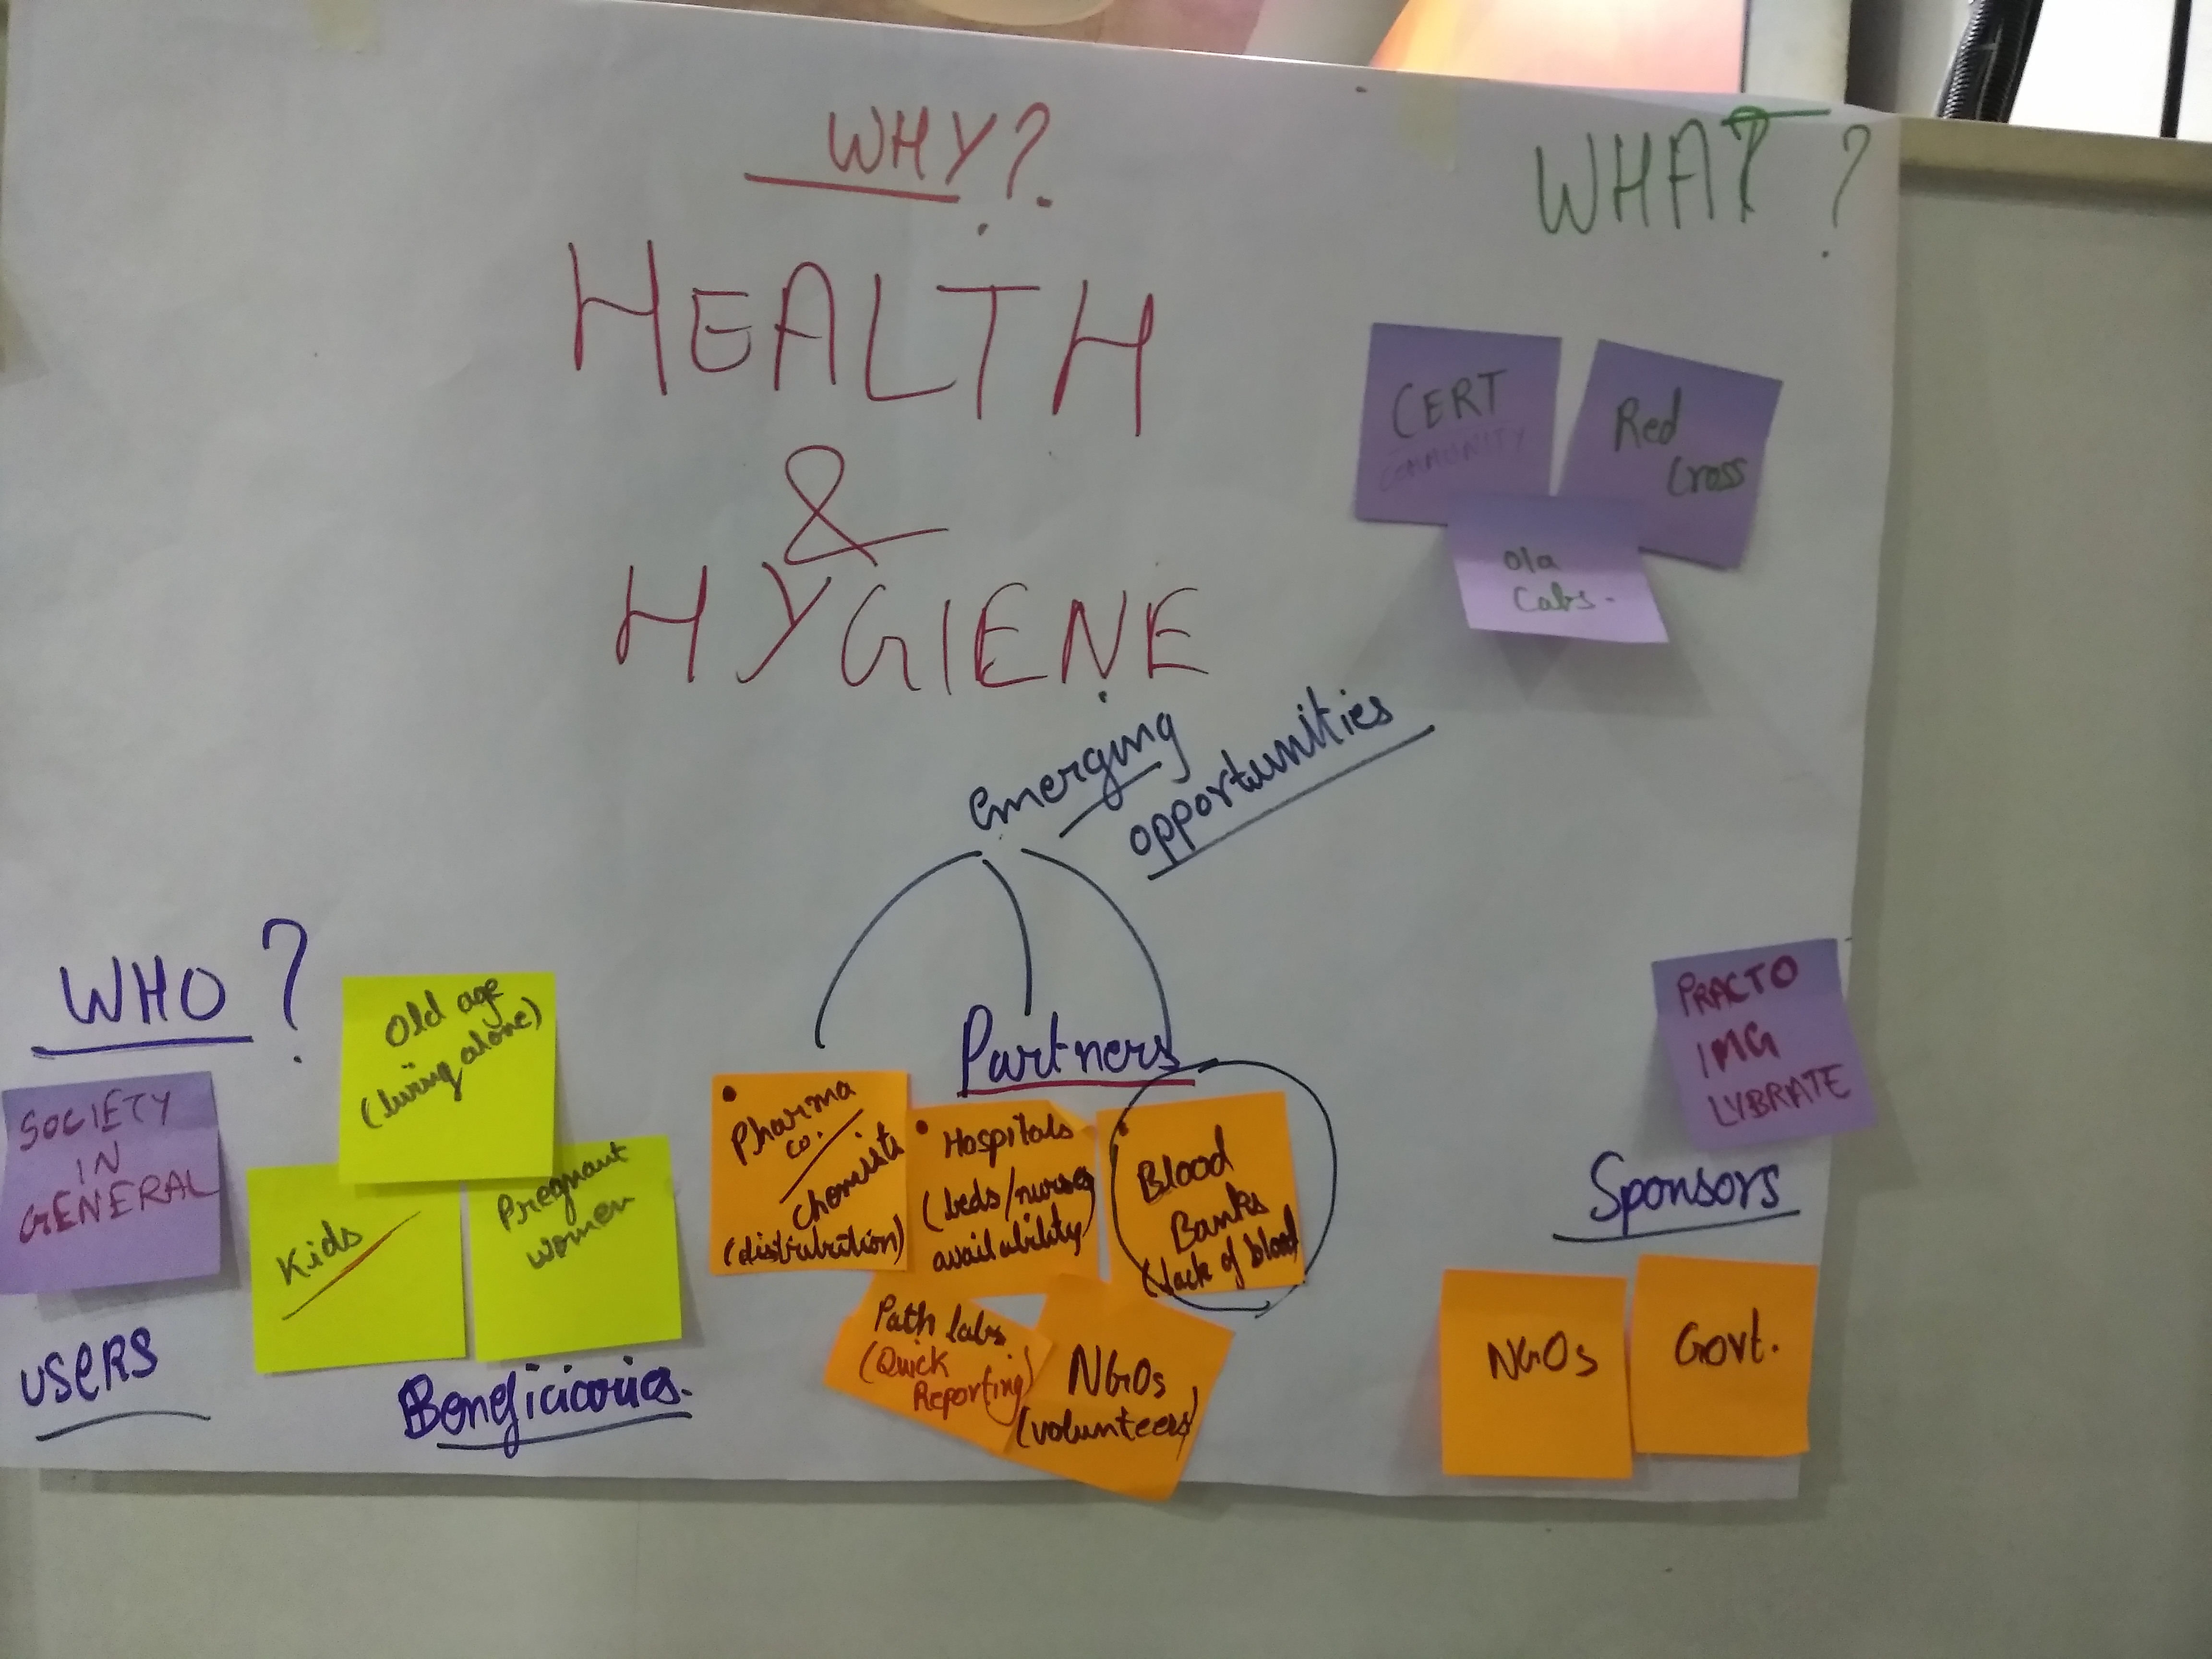 WHY?
HEALTH
&
HYGIENE
WHAT?
CERT
COMMUNITY
Red
Cross
Ola
Cabs.
emerging
opportunities
WHO?
SOCIETY
IN
GENERAL
USERS
Old age
(living alone)
Kids
Pregnant
women
Beneficiaries.
Partners
Pharma
co.
Chemists
(distribution)
Hospitals
(beds/nurses
availability)
Blood
Banks
(lack of blood)
Path labs
(Quick
Reporting)
NGOs
(volunteers)
PRACTO
1MG
LYBRATE
Sponsors
NGOs
Govt.